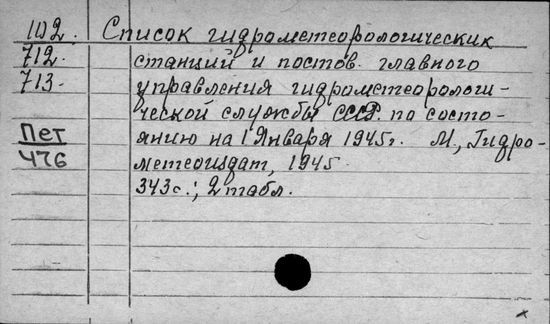 102. Список гидрометеорологических
712. станций и постов главного
713. управления гидрометеорологи-
ческой службы СССР. по состо-
Пет янию на 1 Января 1945г. М., Гидро-
476 метеоиздат, 1945
343с.; 2 табл.